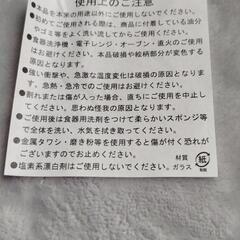 使用上のご注意
●本品を本来の用途以外にご使用しないでください。
●初めて使用される際は、商品に付着している油分
やゴミ等をよく洗い流してからご使用ください。
●食器洗浄機・電子レンジ・オーブン・直火のご使用
はお避けください。本品破損や絵柄部分が変色する
原因となります。
●強い衝撃や、急激な温度変化は破損の原因となりま
す。急熱・急冷でのご使用はお避けください。
●割れまたは傷が入った場合、直ちにご使用を中止し
てください。思わぬ怪我の原因となります。
●ご使用後は食器用洗剤をつけて柔らかいスポンジ等
で全体を洗い、水気を拭き取ってください。
●金属タワシ・磨き粉等を使用すると傷が付く恐れが
ございますのでお止めください。
●塩素系漂白剤はご使用しないでください。
材質
ガラス
紙